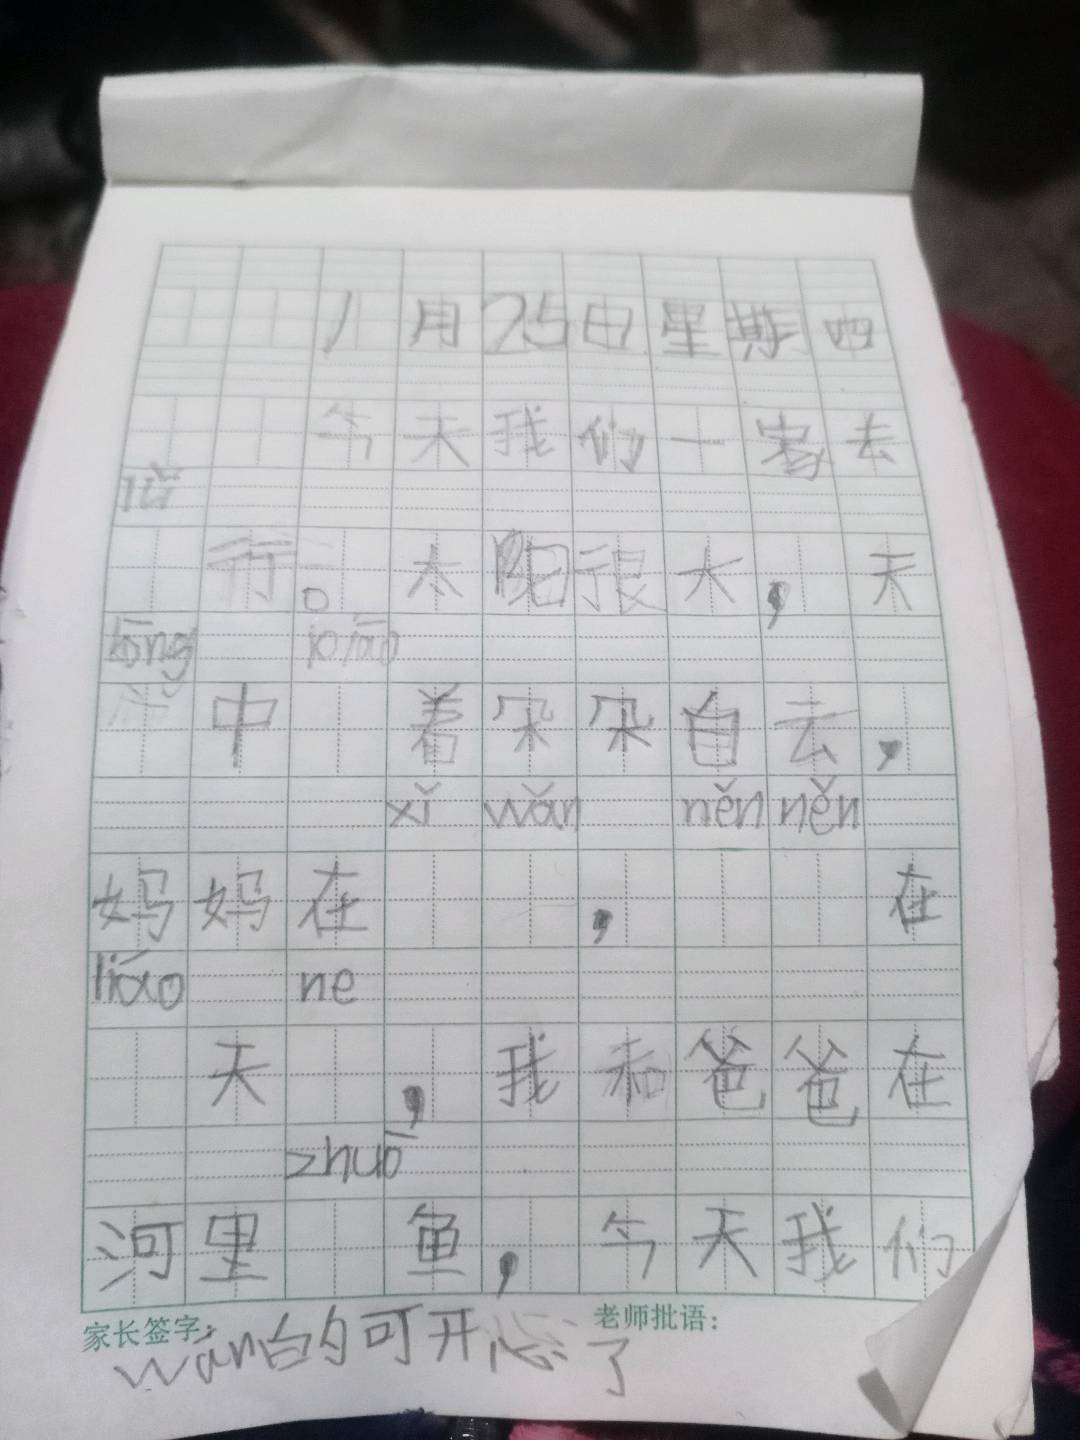 1月25日星期四
今天我们一家去
lǚ
行。太阳很大,天
kōng piāo
中 着朵朵白云,
xǐ wǎn něn něn
妈妈在 , 在
liáo ne
天 ,我和爸爸在
zhuō
河里 鱼,今天我们
家长签字: 老师批语:
wán的可开心了